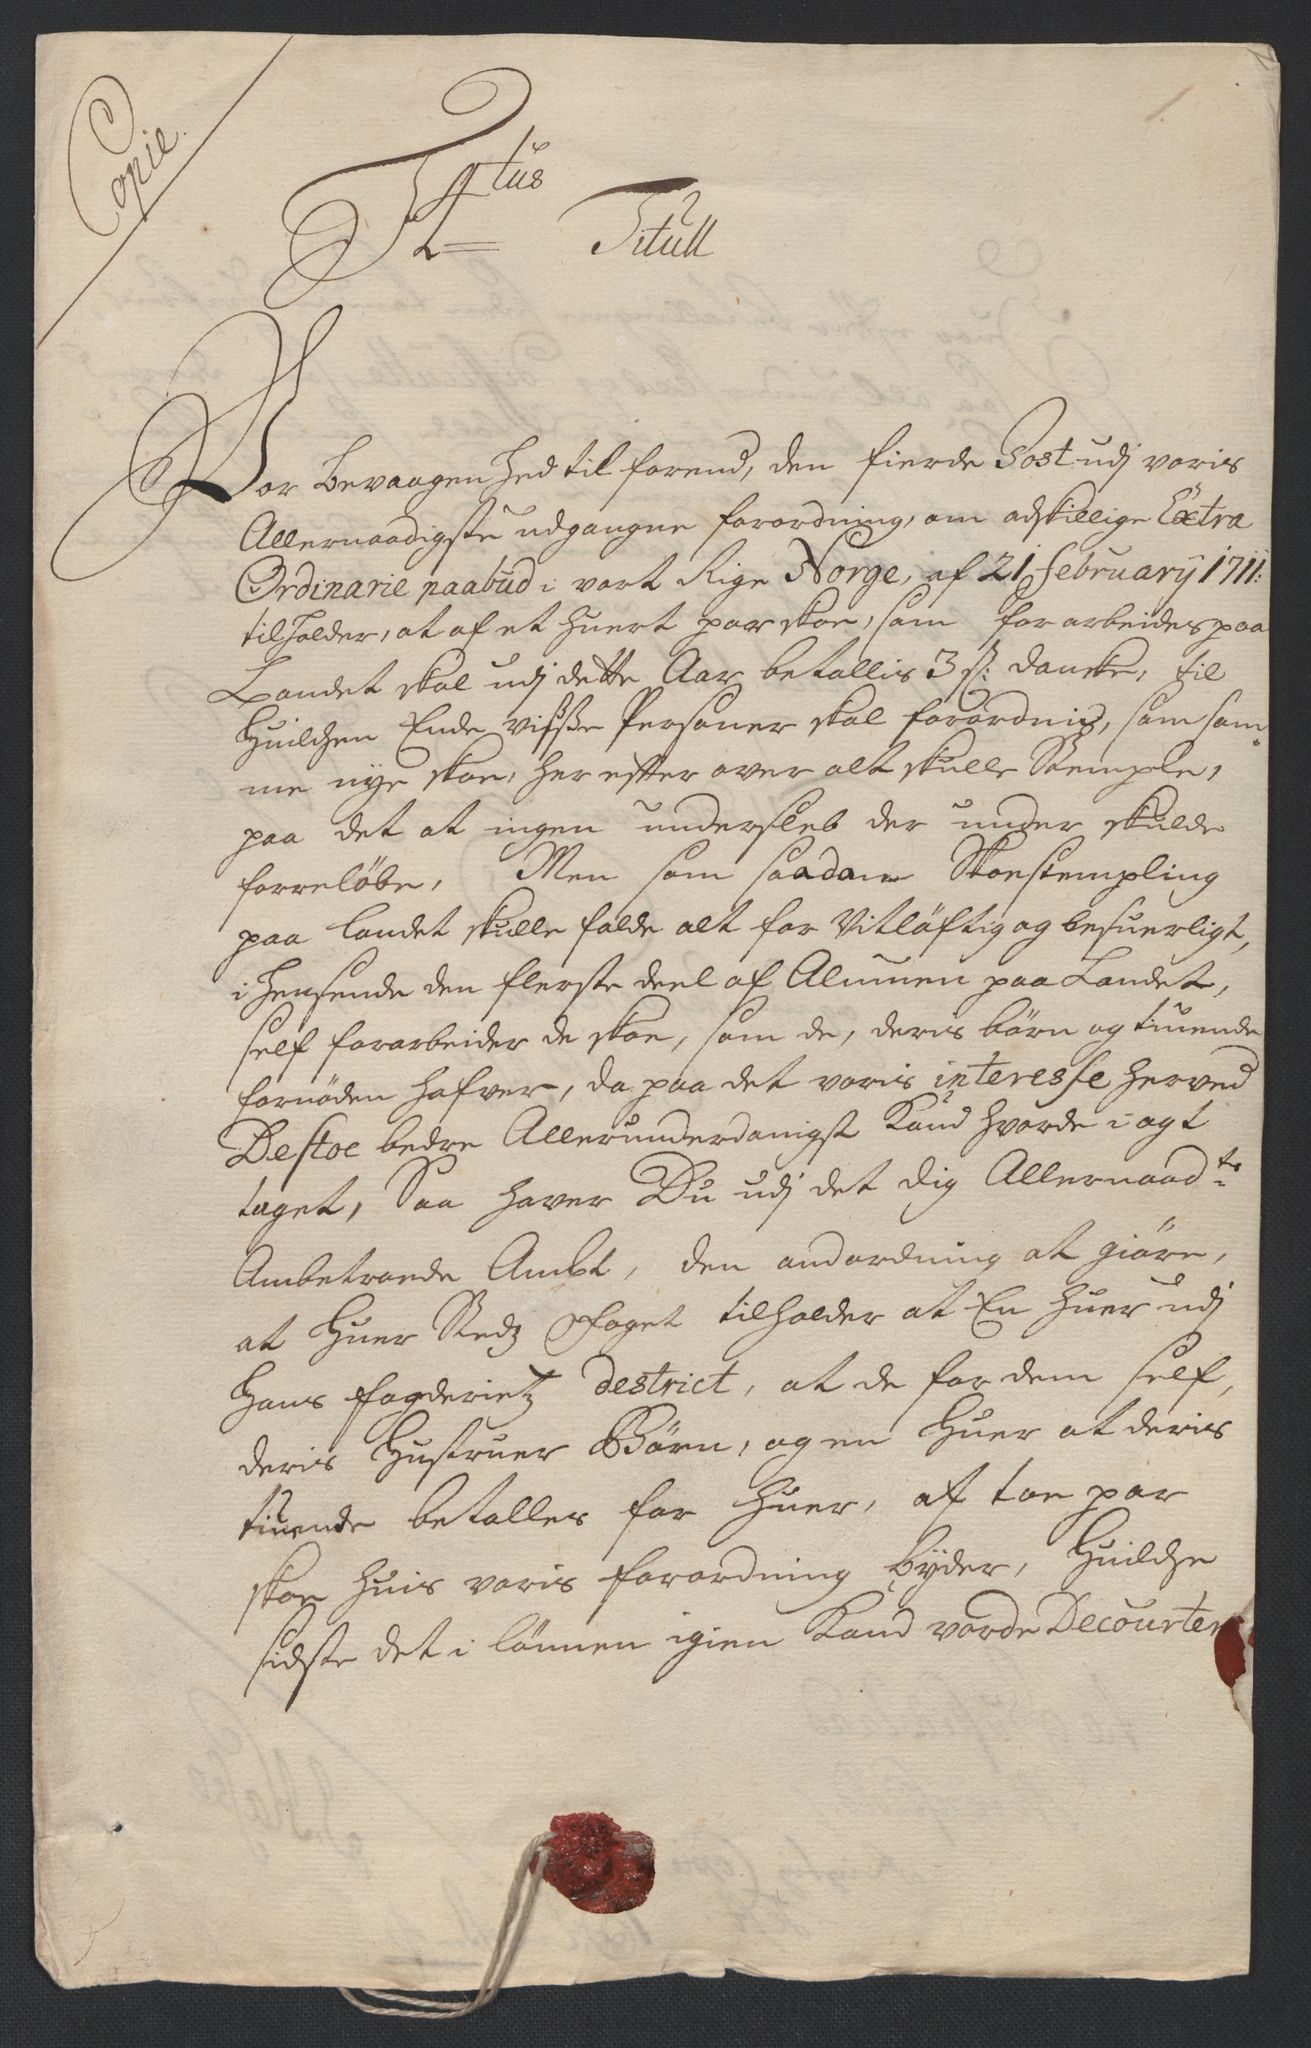 Copie.
F 4tus Titull
Vor bevaagenhed til forend, den fierde Post udj voris
Allernaadigste udgangne forordning, om adskillige Extra
Ordinarie paabud i vort Rige Norge, af 21 februarij 1711:
tilholder, at af et huert par skoe, som forarbeides paa
Landet skal udj dette Aar betallis 3 s: danske, til
Huilchen Ende visse Personer skal forordnis, som sam„
me nye skoe, her efter over alt skulle Stemple,
paa det at ingen undersleb der under skulde
forreløbe, Men som saadan Skoestempling
paa landet skulle falde alt for Vitløftig og besuerligt,
i hensende den flerste deel af Almuen paa Landet,
self forarbeider de skoe, som de, deris børn og tiuende
fornøden hafver, da paa det voris interesse herved
Destoe bedre Allerunderdanigst Kand hvorde i agt
taget, Saa haver Du udj det dig Allernaadte
Ambetroede Ambt, den andordning at giøre,
at Huer Stedz Foget tilholder at En huer udj
Hans fogderietz destrict, at de for dem self,
deris Hustruer Børn, og en Huer af deris
tiuende betaller for huer, af toe par
skoe huis voris forordning byder, Huilche
sidste det i lønnen igien Kand vorde Decourter